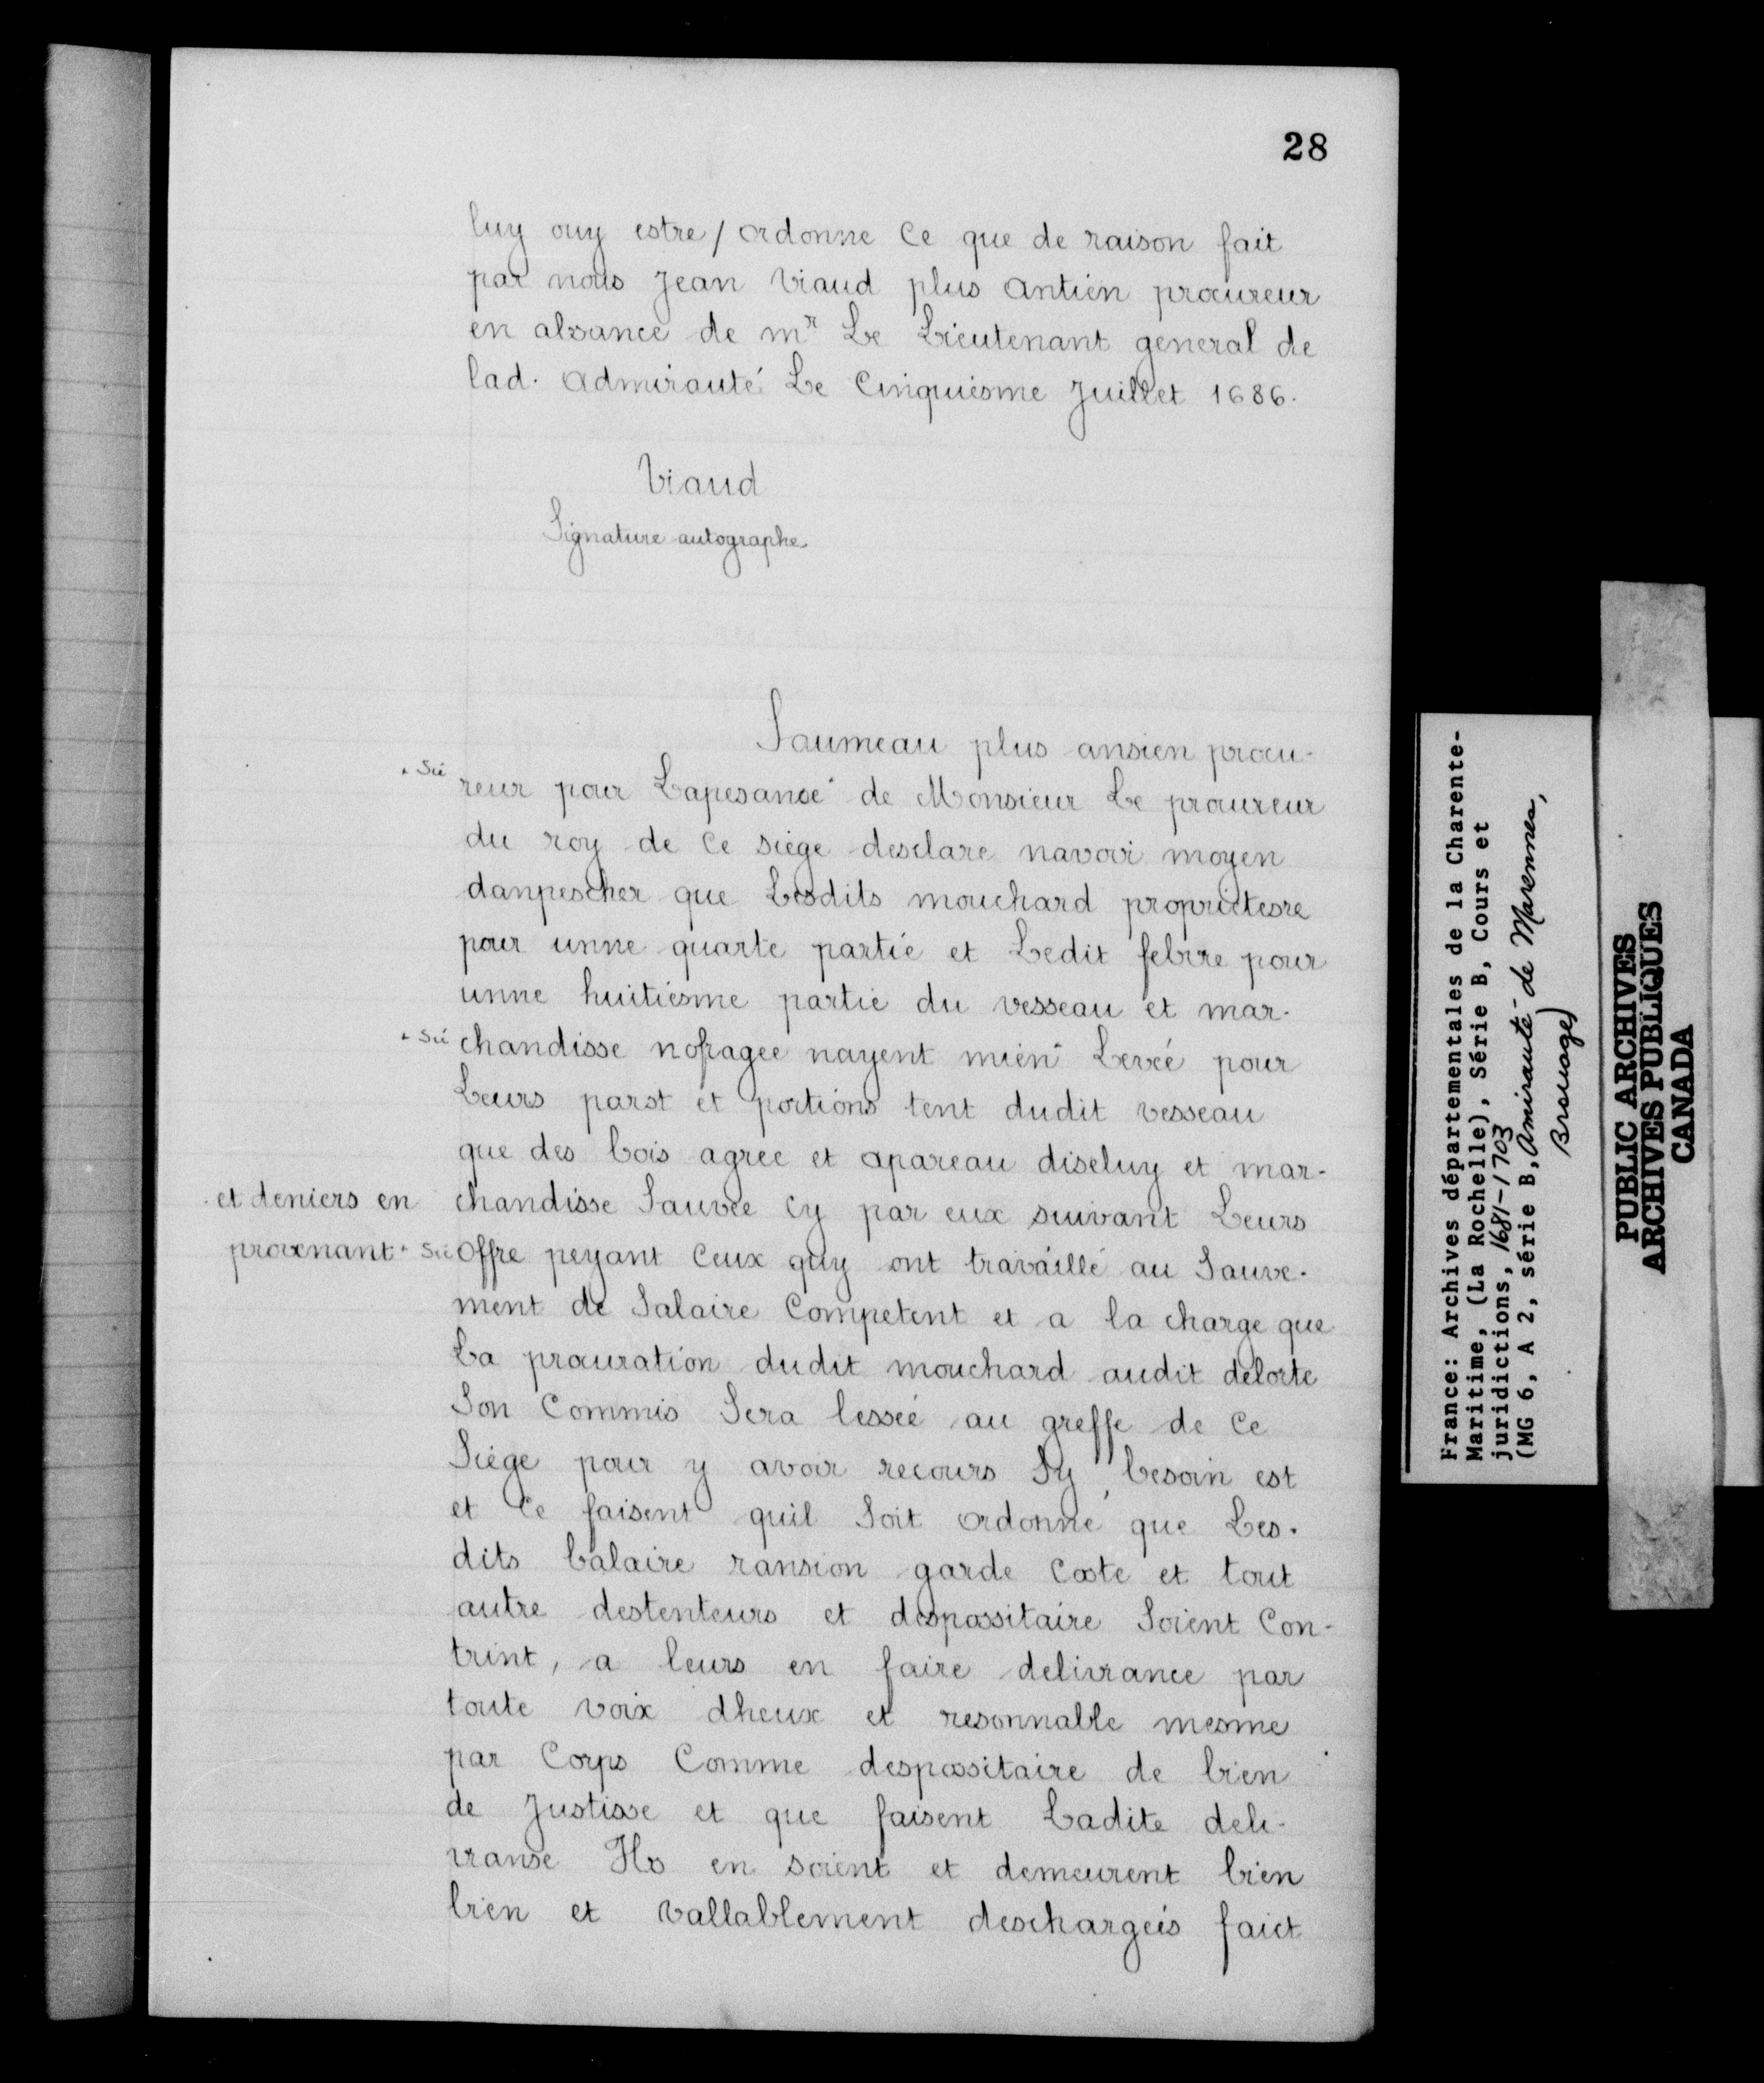 28
luy ouy estre / ordonne Ce que de raison fait
par nous Jean Viaud plus antien procureur
en absance de mr Le Lieutenant general de
lad. admirauté Le Cinquiesme Juillet 1686.
Viaud
Signature autographe
Saumeau plus ansien procu-
+ Sic
reur pour Lapesanse de Monsieur Le procureur
du roy de Ce siege desclare navoir moyen
danpescher que Lesdits mouchard proprietesre
pour unne quarte partie et Ledit febvre pour
unne huitiesme partie du vesseau et mar-
+ Sic
chandisse nofragee nayent mien Levee pour
Leurs parst et portions tent dudit vesseau
que des bois agree et apareau diseluy et mar-
et deniers en
chandisse Sauvee Cy par eux suivant Leurs
provenant + Sic
Offre peyant Ceux quy ont travaillé au Sauve-
ment de Salaire Competent et a la charge que
La procuration dudit mouchard audit delorte
Son Commis Sera lessée au greffe de Ce
Siege pour y avoir recours Sy besoin est
et Ce faisent quil Soit ordonné que Les-
dits balaire ransion garde Coste et tout
autre destenteurs et despositaire Soient Con-
trint, a leurs en faire delivrance par
toute voix dheux et resonnable mesme
par Corps Comme despositaire de bien
de Justisse et que faisent Ladite deli-
vranse Ils en soient et demeurent bien
bien et Vallablement deschargeés faict
France: Archives départementales de la Charente-
Maritime, (La Rochelle), Série B, Cours et
juridictions, 1681-1703
(MG 6, A 2, série B, Amirauté de Marennes,
Brouage)
PUBLIC ARCHIVES
ARCHIVES PUBLIQUES
CANADA